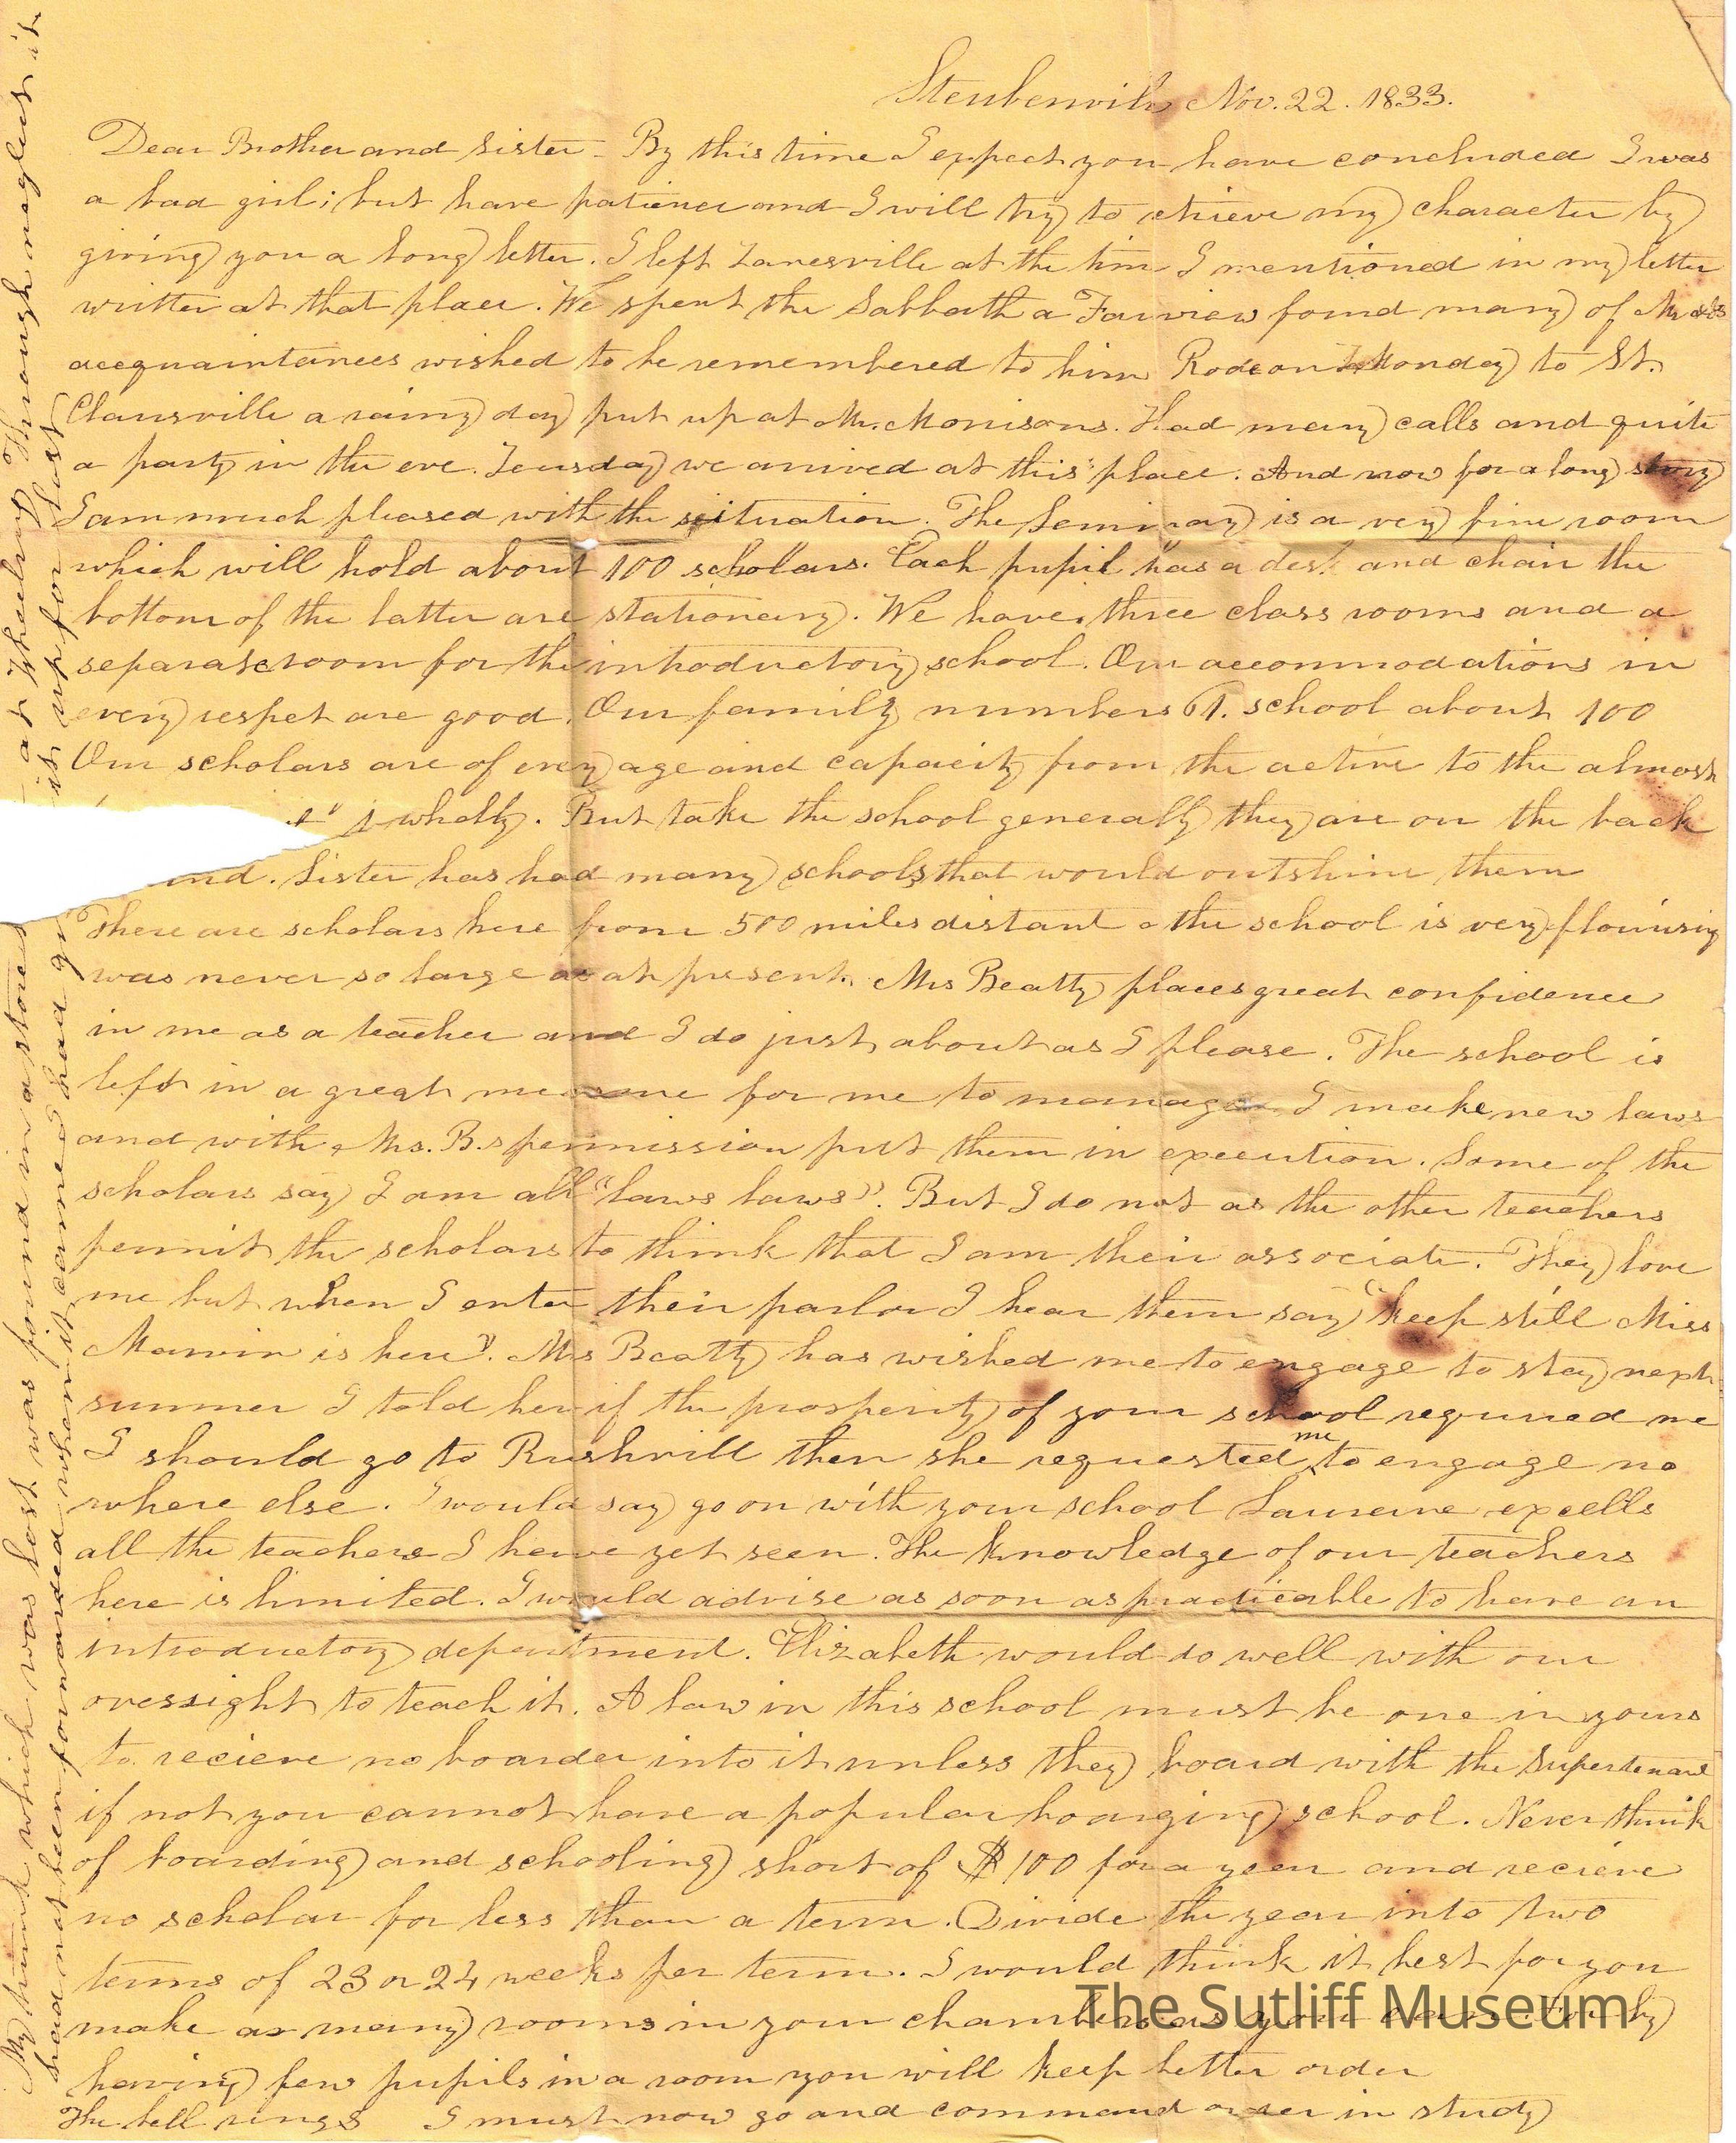 Steubenville Nov. 22. 1833.
Dear Brother and Sister - By this time I expect you have concluded I was
a bad girl; but have patience and I will try to retrieve my character by
giving you a long letter. I left Zanesville at the time I mentioned in my letter
written at that place. We spent the Sabbath a Fairview found many of Mr
accquaintances wished to be remembered to him Rode on Monday to St.
Clairsville a rainy day put up at Mr. Morrisons. Had many calls and quite
a party in the eve. Teusday we arrived at this place. And now for a long story
I am much pleased with the situation. The Seminary is a very fine room
which will hold about 100 scholars. Each pupil has a desk and chair the
bottom of the latter are stationery. We have three class rooms and a
separate room for the introductory school. Our accommodations in
every respect are good. Our family numbers 61. school about 100
Our scholars are of every age and capacity from the active to the almost
wholly. But take the school generally they are on the back
Sister has had many schools that would outshine them
There are scholars here from 500 miles distant the school is very flourising
was never so large as at present. Mrs Beatty places great confidence
in me as a teacher and I do just about as I please. The school is
left in a great measure for me to manage I make new laws
and with Mrs. B.s permission put them in execution. Some of the
scholars say I am all "laws laws". But I do not as the other teachers
permit the scholars to think that I am their associate. They love
me but when I enter their parlor I hear them say "keep still Miss
Marvin is here". Mrs Beatty has wished me to engage to stay next
summer I told her if the prosperity of your school required me
I should go to Rushvill then she requested me to engage no
where else. I would say go on with your school Laurene excells
all the teachers I have yet seen. The knowledge of our teachers
here is limited. I would advise as soon as practicable to have an
introductory department. Elizabeth would do well with our
oversight to teach it. A law in this school must be one in yours
to recieve no boarder into it unless they board with the Supertenant
if not you cannot have a popular boarging school. Never think
of boarding and schooling short of $100 for a year and recieve
no scholar for less than a term. Divide the year into two
terms of 23 or 24 weeks per term. I would think it best for you
make as many rooms in your chambers as you can. For by
having few pupils in a room you will keep better order
The bell rings I must now go and command order in study
My trunk which was lost was found in a store at Wheeling Through neglect it
had not been forwarded when it came I had it up for lost
The Sutliff Museum